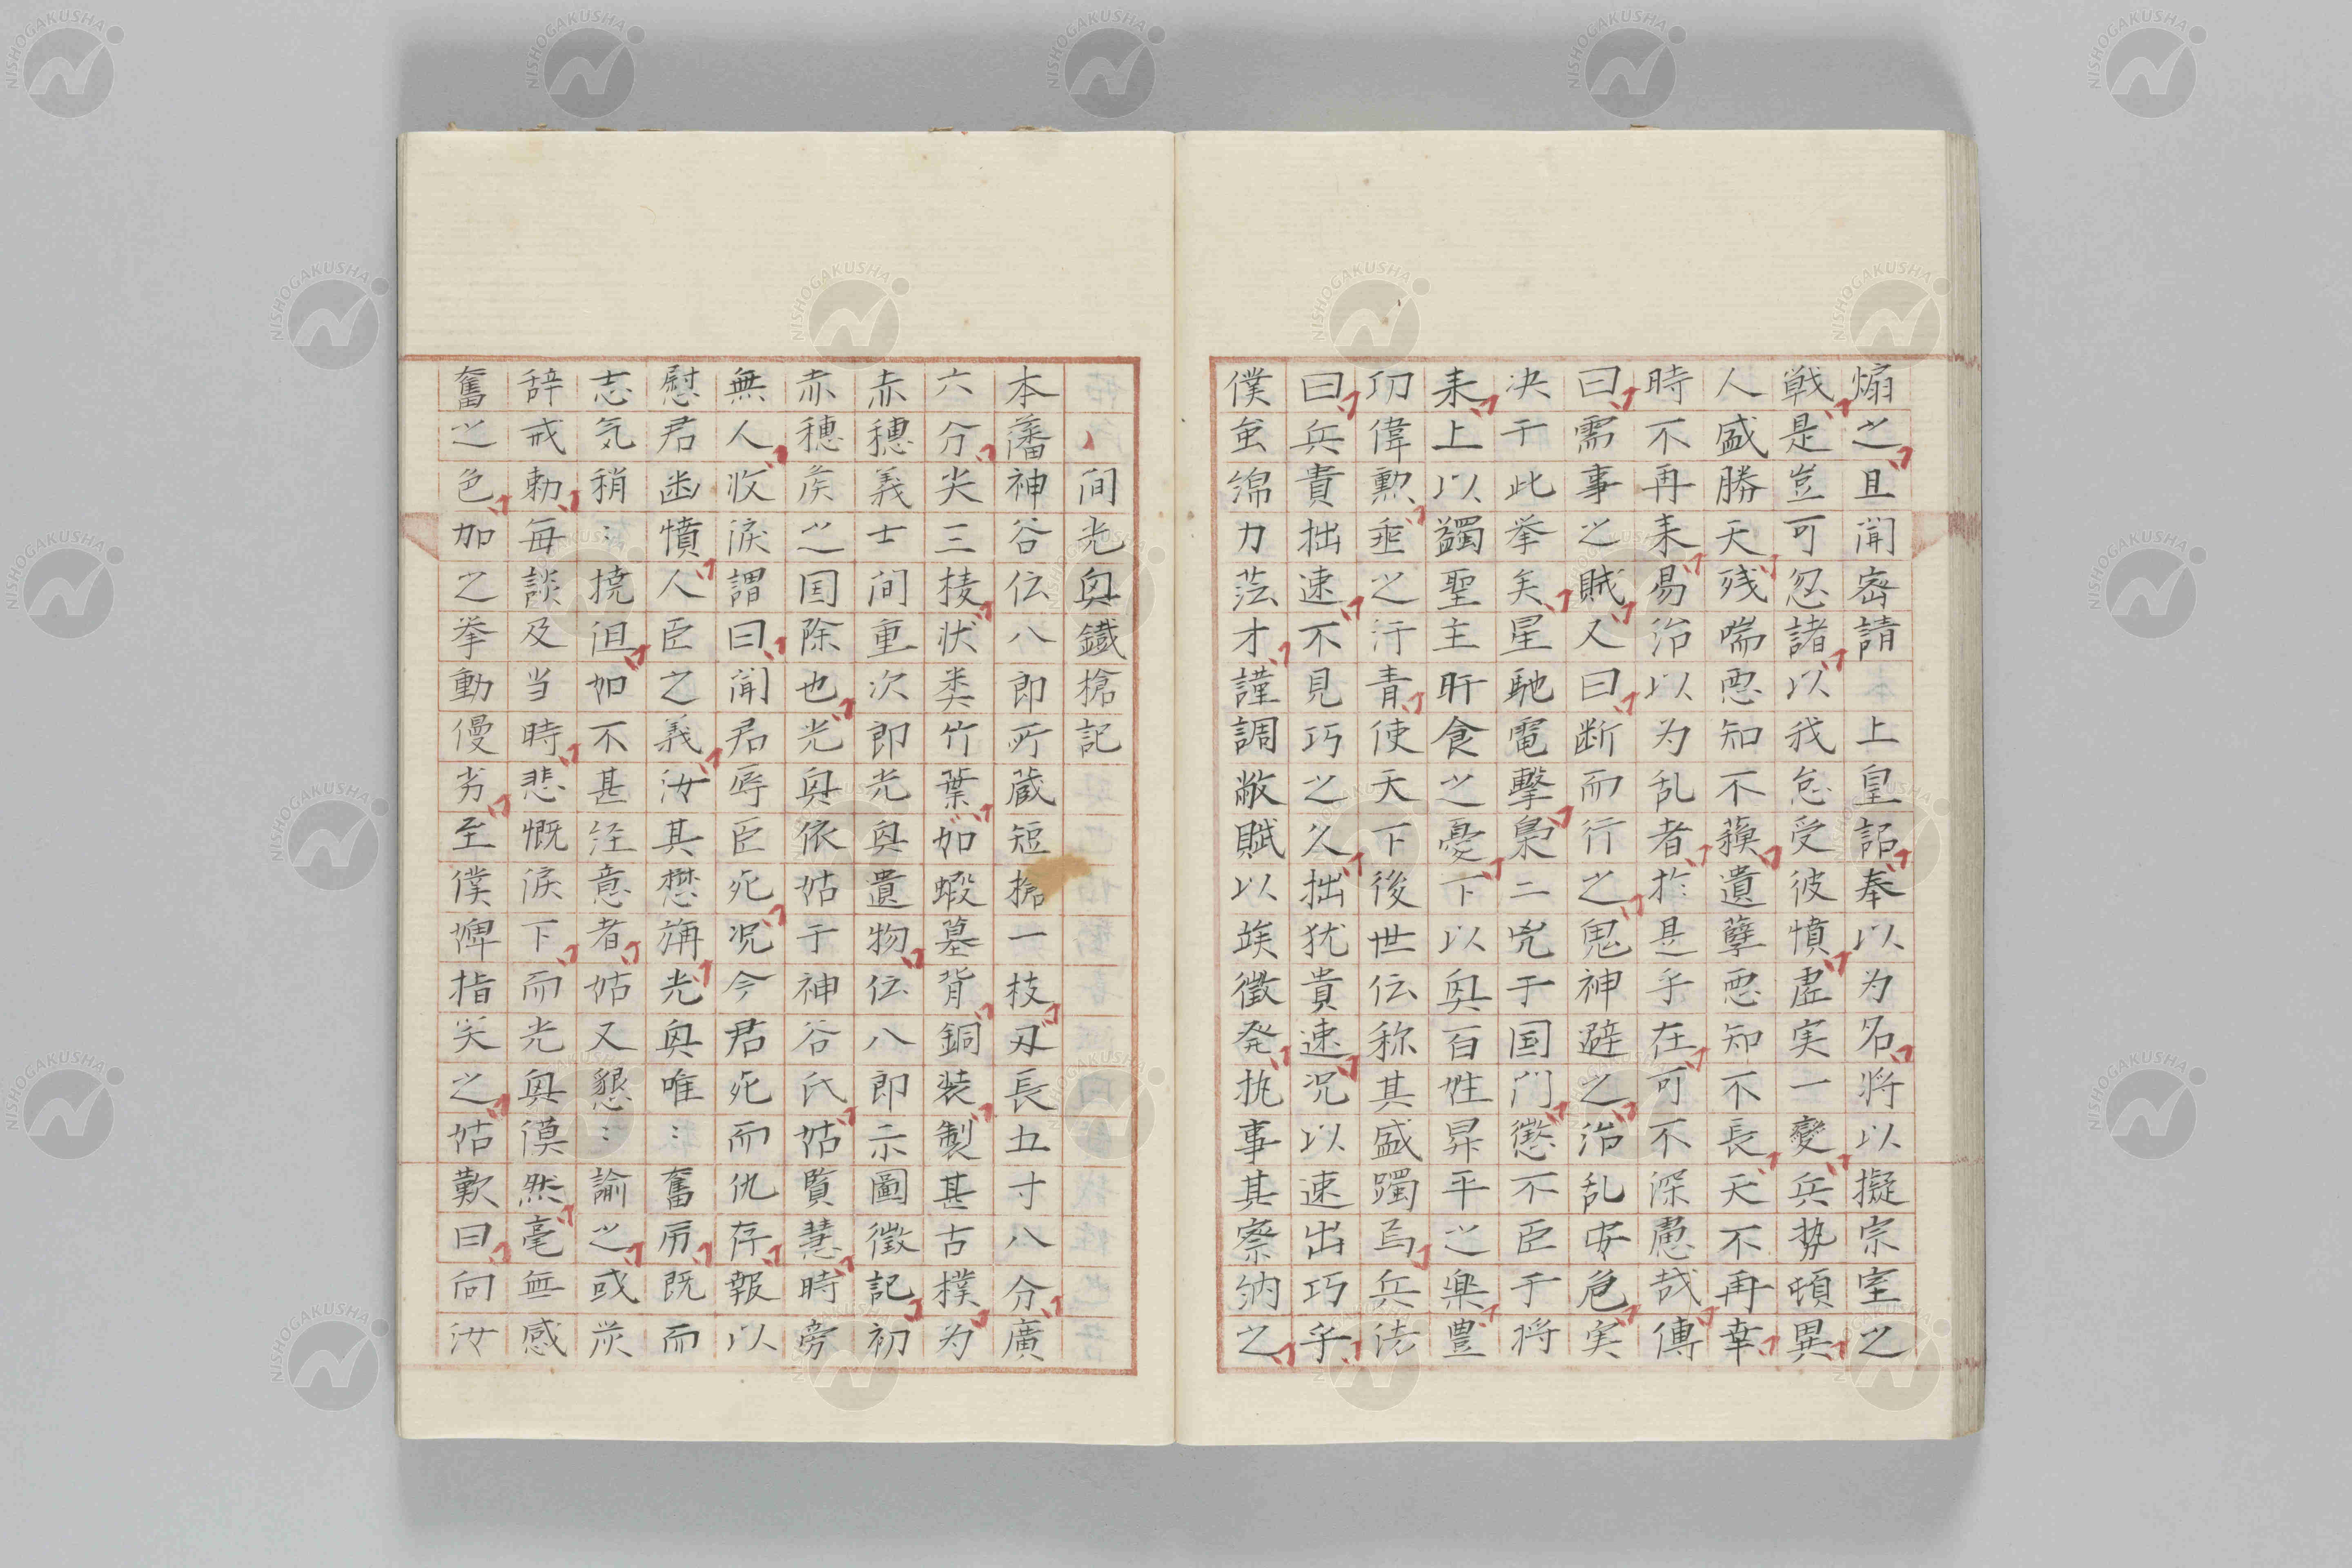 煽之且聞密請上皇詔奉以为名将以擬宗室之
戦是豈可忍諸以我怠受彼憤虚実一變兵势頓異
人盛勝天残喘悪知不蘓遺孽悪知不長天不再幸
時不再来易治以为乱者於是乎在可不深慮哉傳
曰需事之賊又曰断而行之鬼神避之治乱安危実
决于此挙矣星馳電擊梟二兇于国门懲不臣于将
来上以蠲聖主旰食之憂下以與百姓昇平之楽豊
功偉勲垂之汗青使天下後世伝称其盛躅焉兵法
曰兵貴拙速不見巧之久拙犹貴速况以速出巧乎
僕虽綿力菲才謹調敝賦以竢徴発执事其察納之
間光與鐵槍記
本藩神谷伝八郎所蔵短槍一枝刃長五寸八分廣
六分尖三棱状类竹葉如蝦蟇背銅装製甚古樸为
赤穗義士间重次郎光與遺物伝八郎示圖徴記初
赤穗矦之国除也光與依姑于神谷氏姑賢慧時旁
無人收淚謂曰闻君辱臣死况今君死而仇存報以
慰君凼憤人臣之義汝其懋旃光與唯〻奮励既而
志気稍〻撓沮如不甚注意者姑又懇〻諭之或嵗
辞戒勅每談及当時悲慨淚下而光與漠然毫無感
奮之色加之挙動優劣至僕婢指笑之姑歎曰向汝